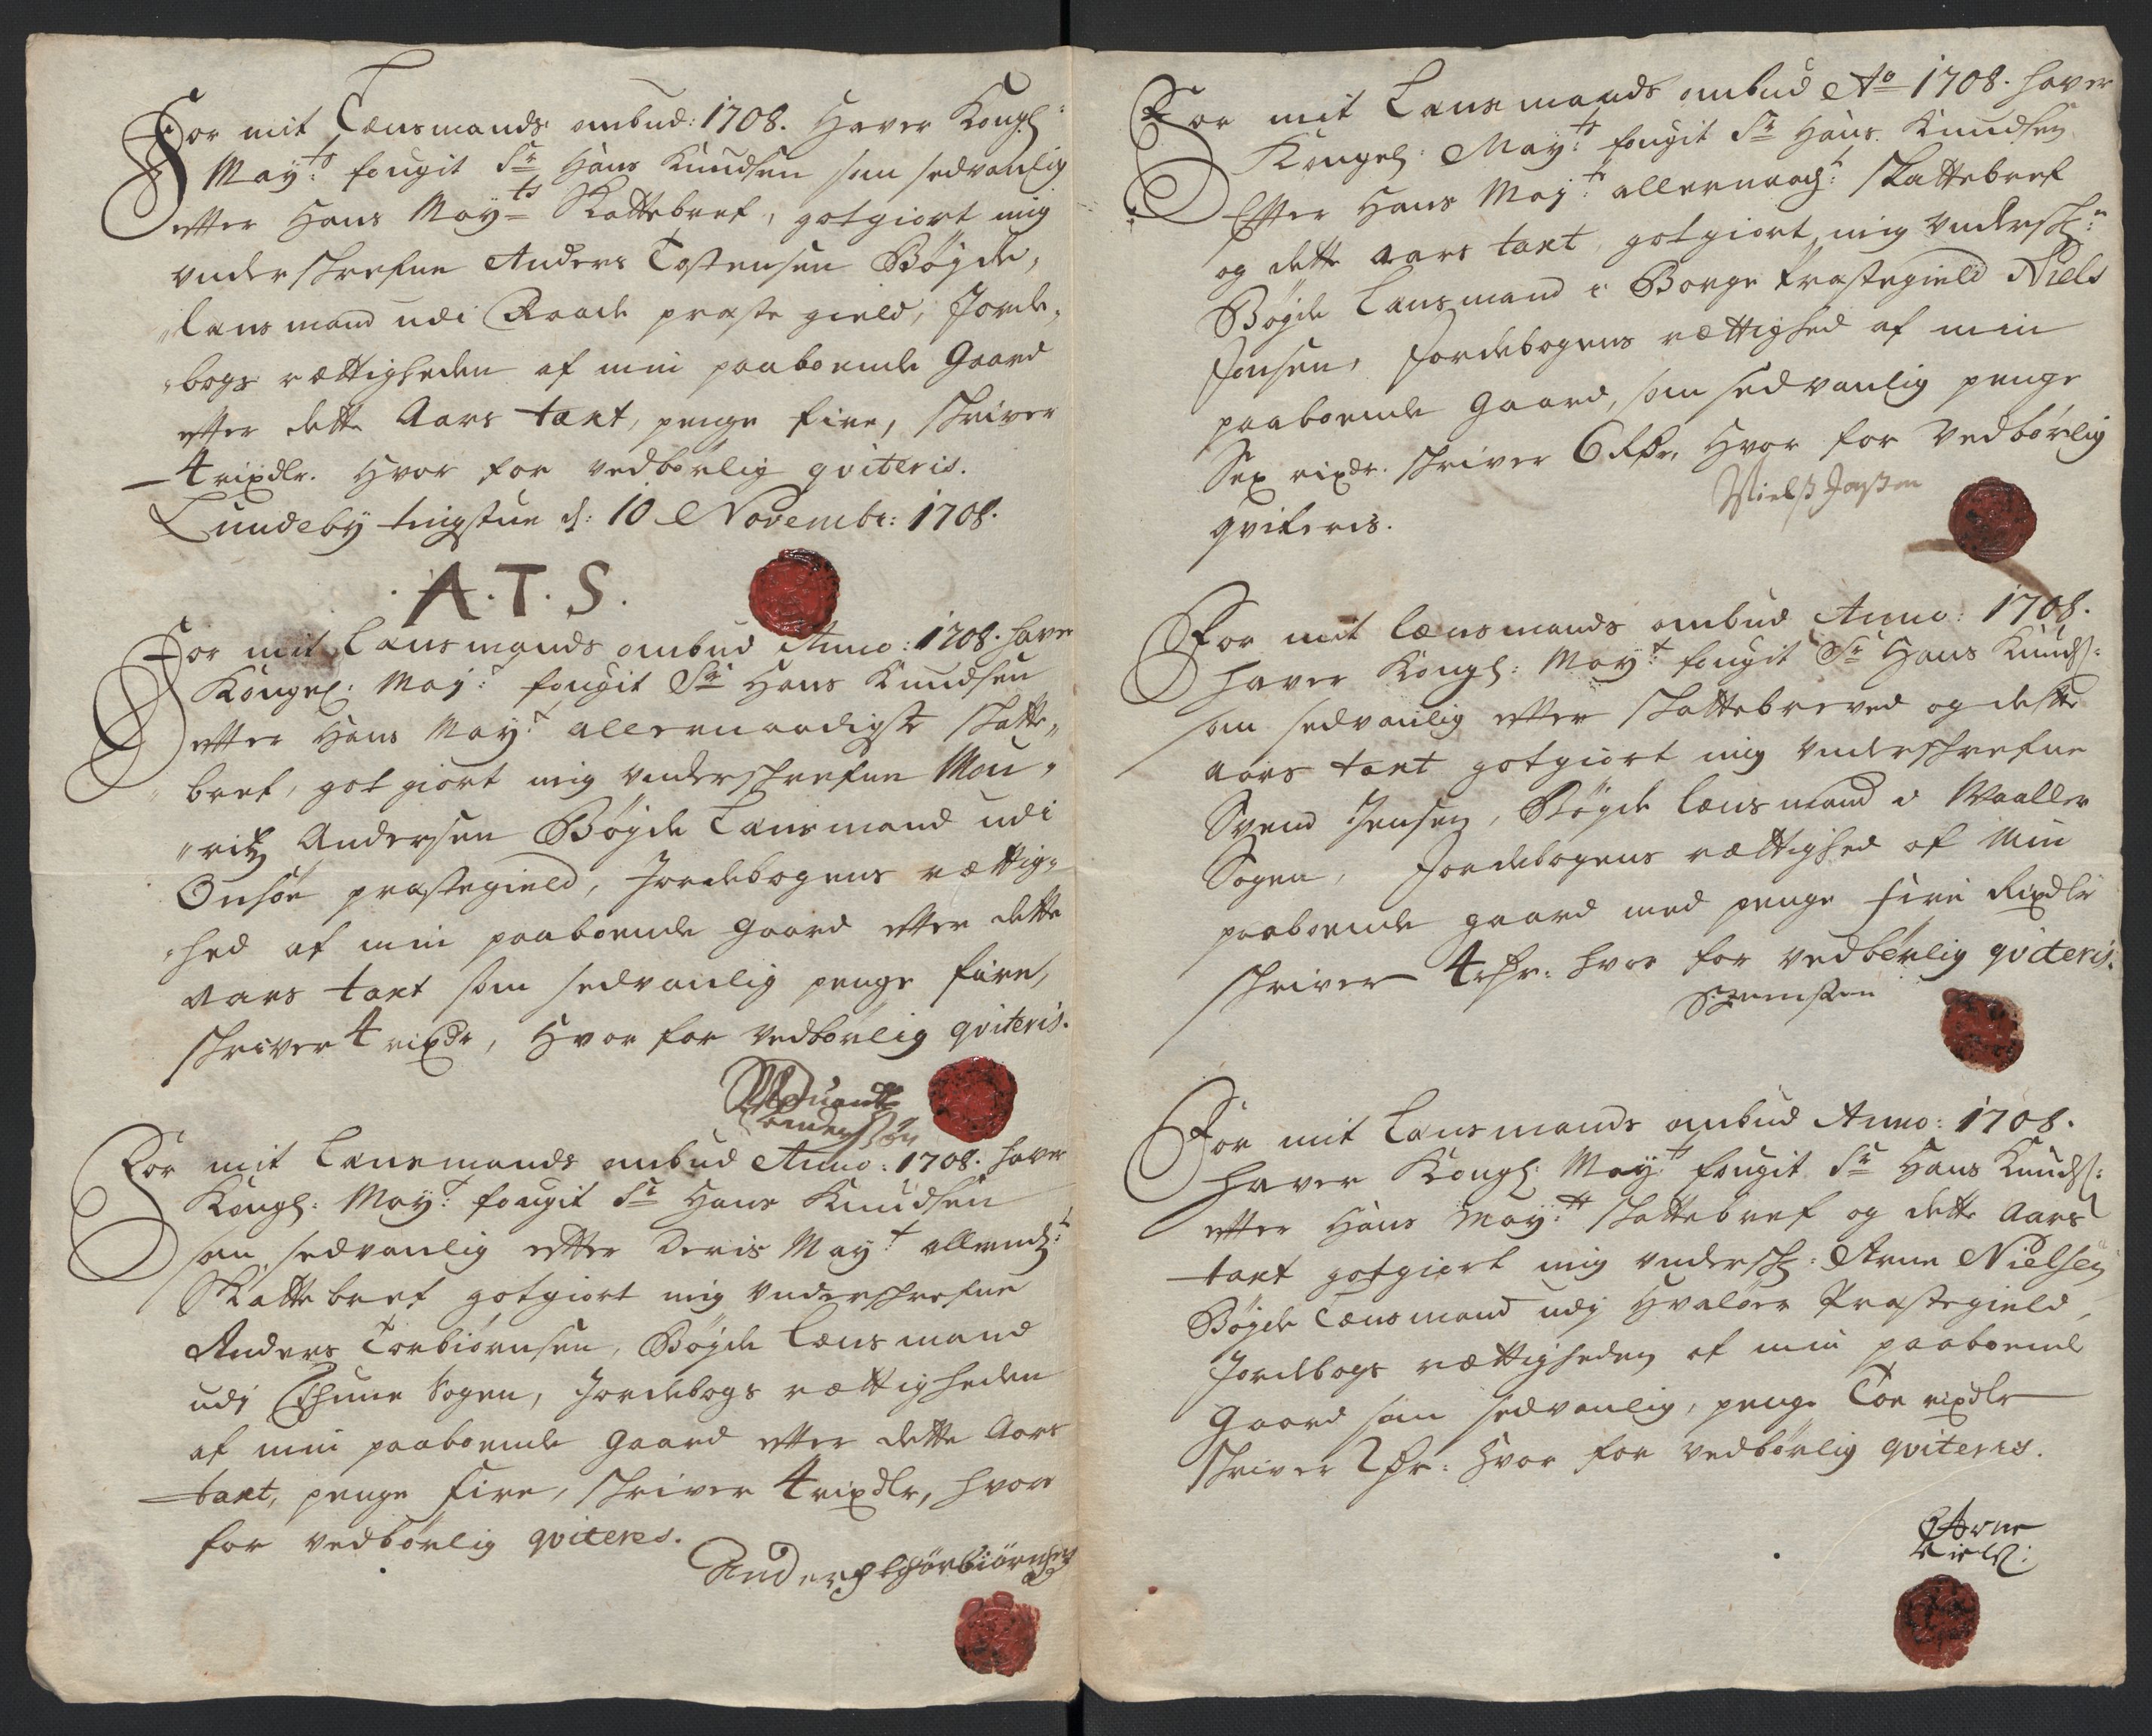 For mit Lensmands ombud: 1708. Haver Kongl:
May:ts fougit Sr Hans Knudsen som sedvanlig
efter Hans May:ts Skattebref, gotgiort mig
underskrefne Anders Tostensen Bøyde,
„lensmand udi Raade præste gield, Jorde,
„bogs rettigheden af min paaboende Gaard
efter dette Aars taxt, penge fire, skriver
4 rixdlr. Hvor for vedbørlig qviteris.
Lundeby tingstue d: 10 Novembr: 1708.
A.T.S.
For mit Lensmands ombud Anno: 1708. haver
Kongel: May:t fougit Sr Hans Knudsen
efter Hans May:t allernaadigste skatte„
„bref, got giort mig underskrefne Mou„
„ritz Andersen Bøyde Lensmand udi
Onsøe præstegield, Jordebogens rættig„
„hed af min paaboende gaard efter dette
aars taxt som sedvanlig penge fire,
skriver 4 rixdr, Hvor for vedbørlig qviteris.
For mit Lensmands ombud Anno: 1708. haver
Kongl: May:t fougit Sr Hans Knudsen
som sedvanlig efter Deris May:t allernd:
Skattebref gotgiort mig underskrefne
Anders Torbiørnsen, Bøyde Lensmand
udj Thune Sogen, Jordebogs rættigheden
af min paaboende Gaard efter dette Aars
taxt, penge fire, skriver 4 rixdlr, hvor
for vedbørlig qviteres.
Anderss thørbiørnsen
For mit Lensmands ombud Ao 1708. haver
Kongel: May:ts fougit Sr Hans Knudsen
Efter Hans May:ts allernaad:t skattebref
og dette aars taxt, gotgiort mig undersk:n
Bøyde Lensmand i Borge Præstegield Niels
Jensen, Jordebogens rættighed af min
paaboende Gaard, som sedvanlig penge
Sex rixdr. skriver 6 Rdr, Hvor for Vedbørlig
qviteris.
For mit Lensmands ombud Anno: 1708.
haver Kongl: May:t fougit Sr Hans Knuds:
som sedvanlig efter skattebreved og dette
aars taxt gotgiort mig underskrefne
Svend Jensen, Bøyde lensmand i Waaller
Sogen, Jordebogens rættighed af min
paaboende gaard med penge fire Rixdlr
skriver 4 rdr: hvor for vedbørlig qviteris.
For mit Lensmands ombud Anno: 1708.
haver Kongl: May:t fougit Sr Hans Knuds:
efter Hans May:tt skattebref og dette Aars
taxt gotgiort mig undersk: Arne Nielsen
Bøyde Lensmand udj Hvaløer Præstegield,
Jordebogs rættigheden af min paaboende
Gaard som sedvanlig, penge Toe rixdlr
skriver 2 dr: Hvor for vedbørlig qviteres.
Arne
Niels: